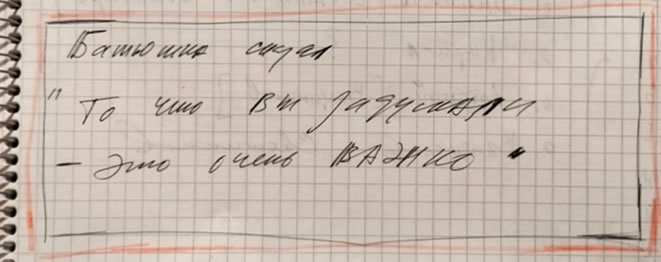 Батюшка сказал
" То что вы задумали
– это очень ВАЖНО "